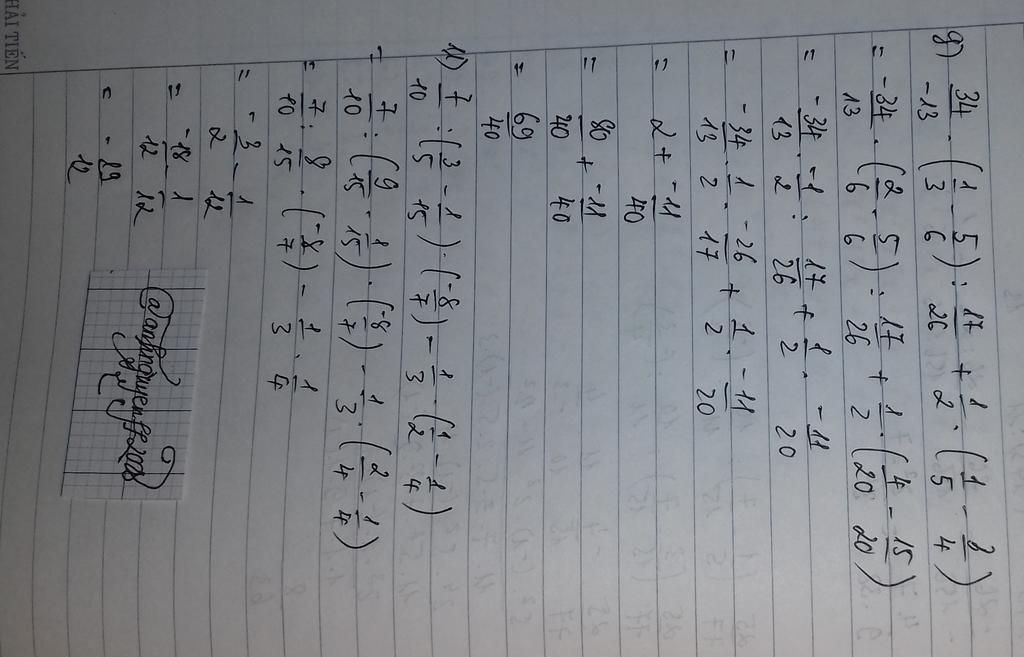 HẢI TIẾN
g) 34/-13 . (1/3 - 5/6) : 17/26 + 1/2 . (1/5 - 3/4)
= -34/13 . (2/6 - 5/6) : 17/26 + 1/2 . (4/20 - 15/20)
= -34/13 . -1/2 : 17/26 + 1/2 . -11/20
= -34/13 . 1/2 . -26/17 + 1/2 . -11/20
= 2 + -11/40
= 80/40 + -11/40
= 69/40
h) 7/10 : (3/5 - 1/15) . (-8/7) - 1/3 . (1/2 - 1/4)
= 7/10 : (9/15 - 1/15) . (-8/7) - 1/3 . (2/4 - 1/4)
= 7/10 : 8/15 . (-8/7) - 1/3 . 1/4
= -3/2 - 1/12
= -18/12 - 1/12
= -19/12